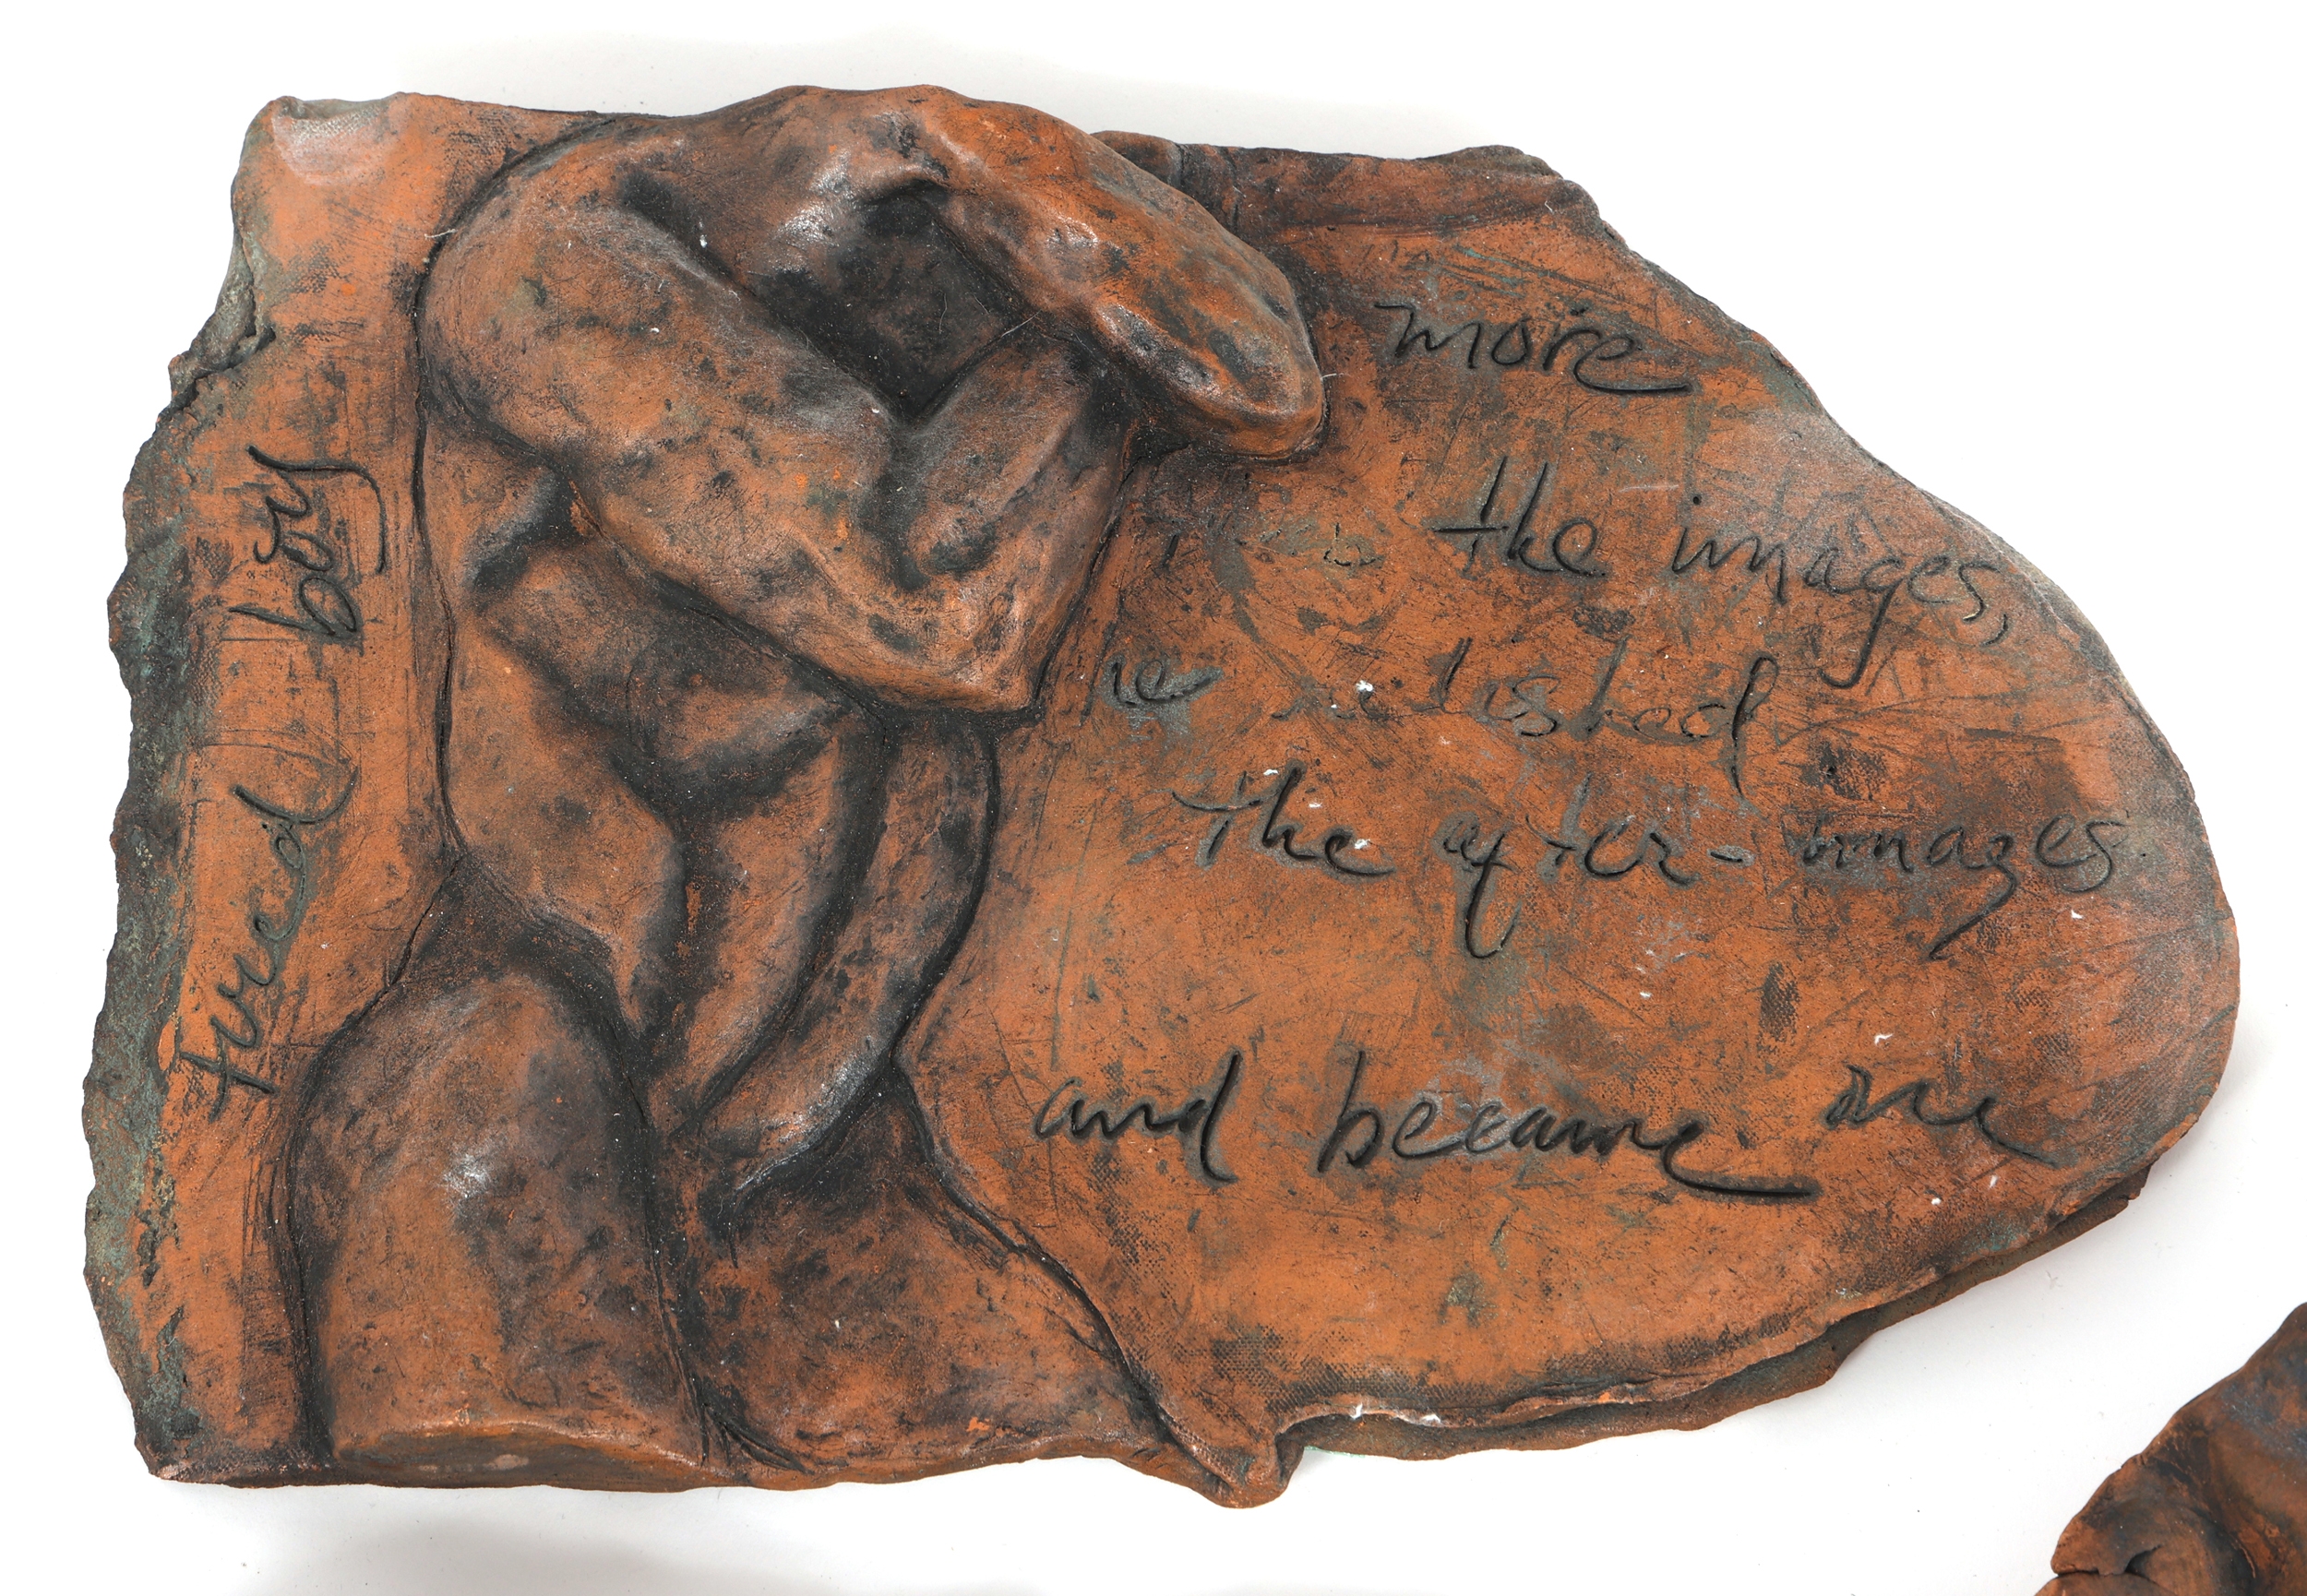 tired boy
more
the images,
relished
the after-images
and became one